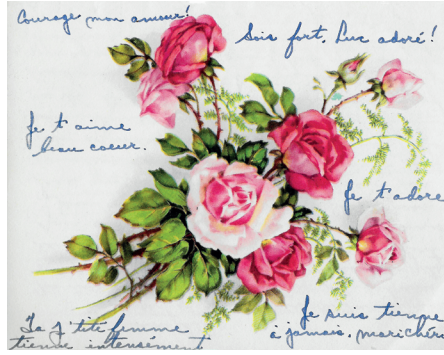 Courage mon amour!
Sois fort, Luc adoré!
Je t'aime
beau coeur.
Je t'adore
Je suis tienne
à jamais, mon chéri
Ta p'tite femme
tienne intensément